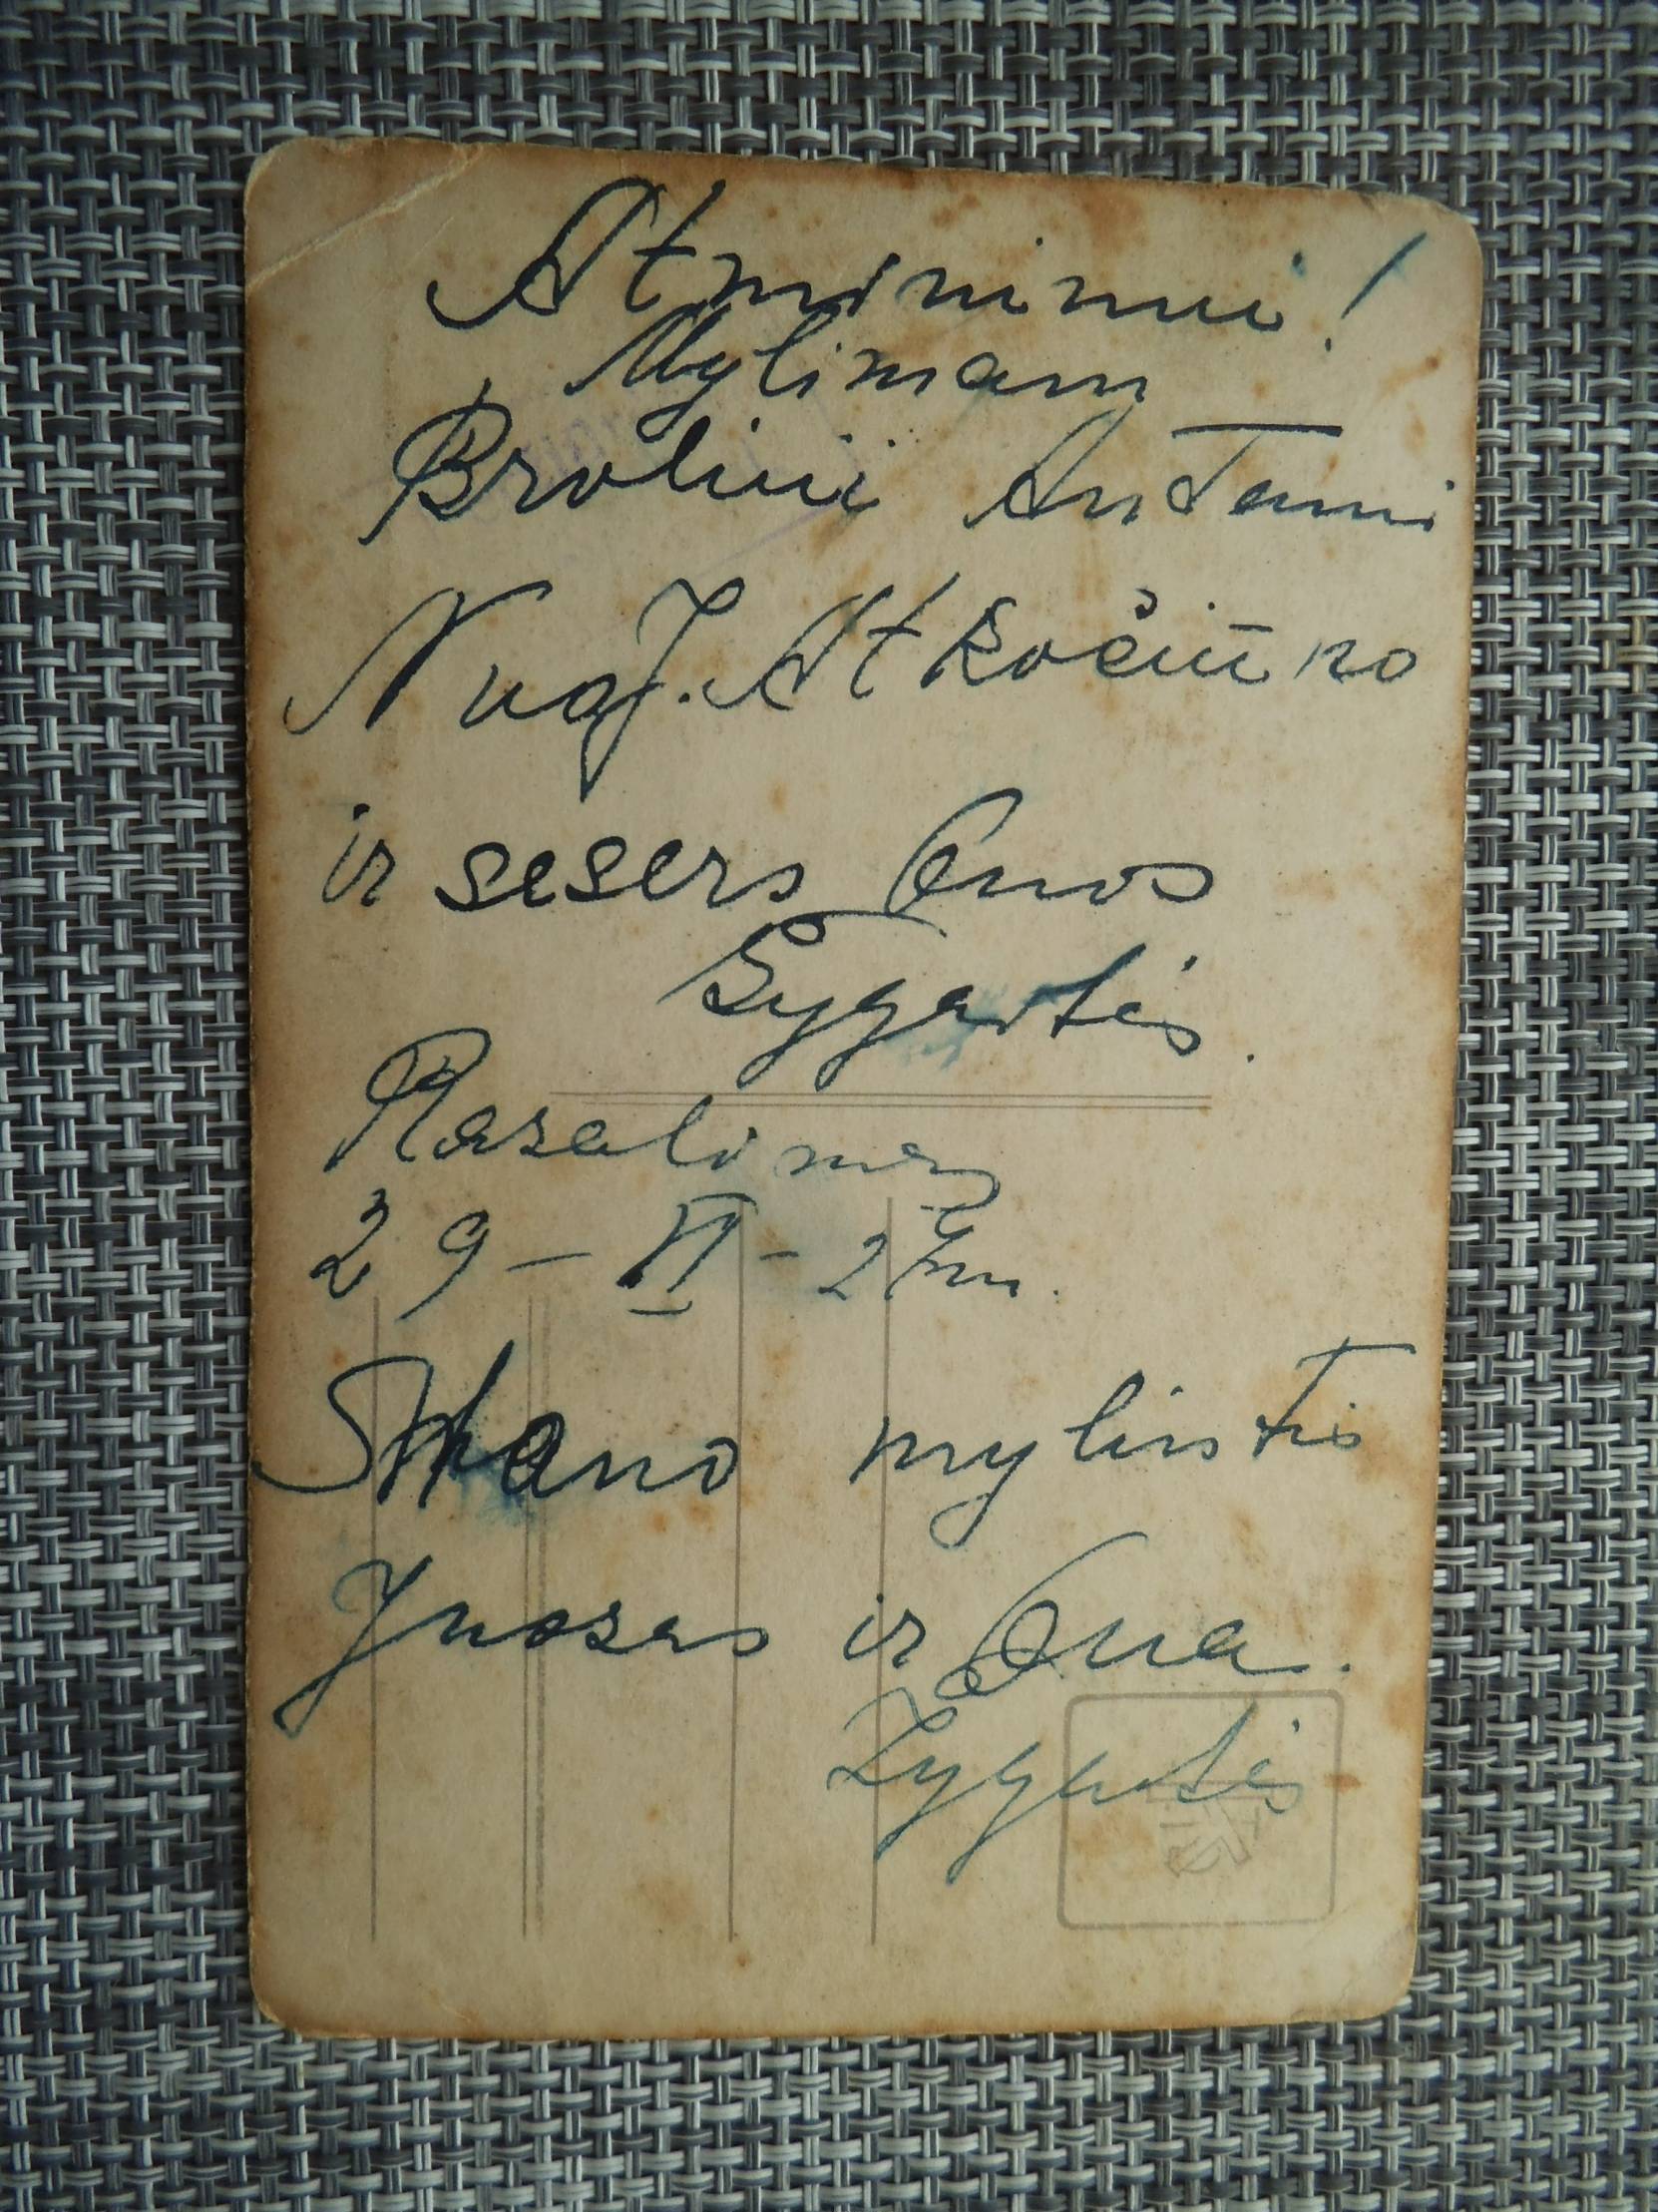 Atminimui!
Mylimam
Broliui Antanui
Nuo J. Atkočiūno
ir sesers Onos
Zygartės.
Rozalimas
29-VI-27 m.
mylintis
Juozas ir Ona.
Zygartės